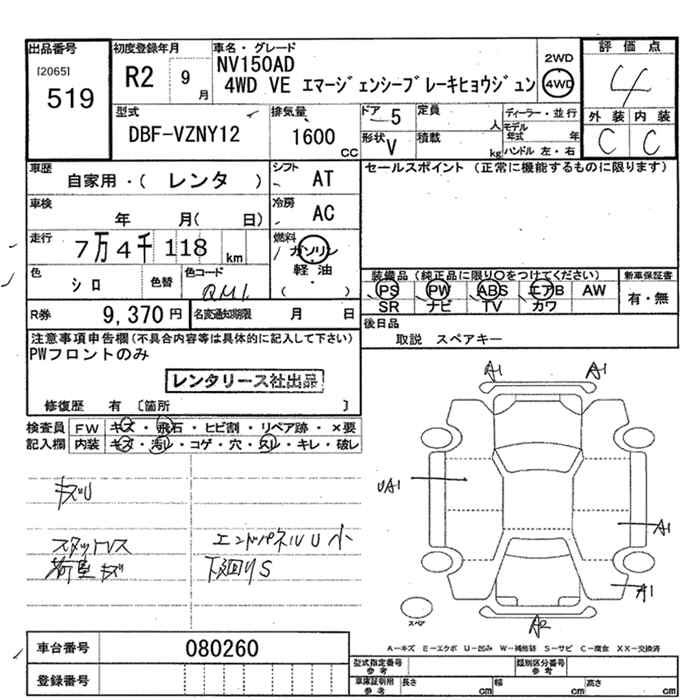 出品番号
[2065]
519
初度登録年月
R2 9月
車名・グレード
NV150AD
4WD VE エマージェンシーブレーキヒョウジュン
2WD
4WD
評価点
4
外装 内装
C C
型式
DBF-VZNY12
排気量
1600 CC
ドア 5
形状 V
定員 人
積載 kg
ディーラー・並行
モデル年式 年
ハンドル 左・右
車歴
自家用・( レンタ )
シフト AT
セールスポイント (正常に機能するものに限ります)
車検
年 月( 日)
冷房 AC
走行
7万4千118 km
燃料
ガソリン
軽油
( )
色
シロ
色替
色コード
QM1
装備品 (純正品に限り○をつけてください)
PS PW ABS エアB AW
SR ナビ TV カワ
新車保証書
有・無
R券 9,370円
名変通知期限 月 日
後日品
取説 スペアキー
注意事項申告欄 (不具合内容等は具体的に記入して下さい)
PWフロントのみ
レンタリース社出品
修復歴 有 〔箇所 〕
検査員記入欄
FW キズ・飛石・ヒビ割・リペア跡・×要
内装 キズ・汚レ・コゲ・穴・スレ・キレ・破レ
キズU
スタットレス
荷室キズ
エンドパネルU小
下廻りS
A1 A1
UA1
A1
A1
A2
スペア
A-キズ E-エクボ U-凹み W-補修跡 S-サビ C-腐食 XX-交換済
車台番号 080260
登録番号
型式指定番号 参考
類別区分番号 参考
車庫証明用 参考
長さ cm 幅 cm 高さ cm